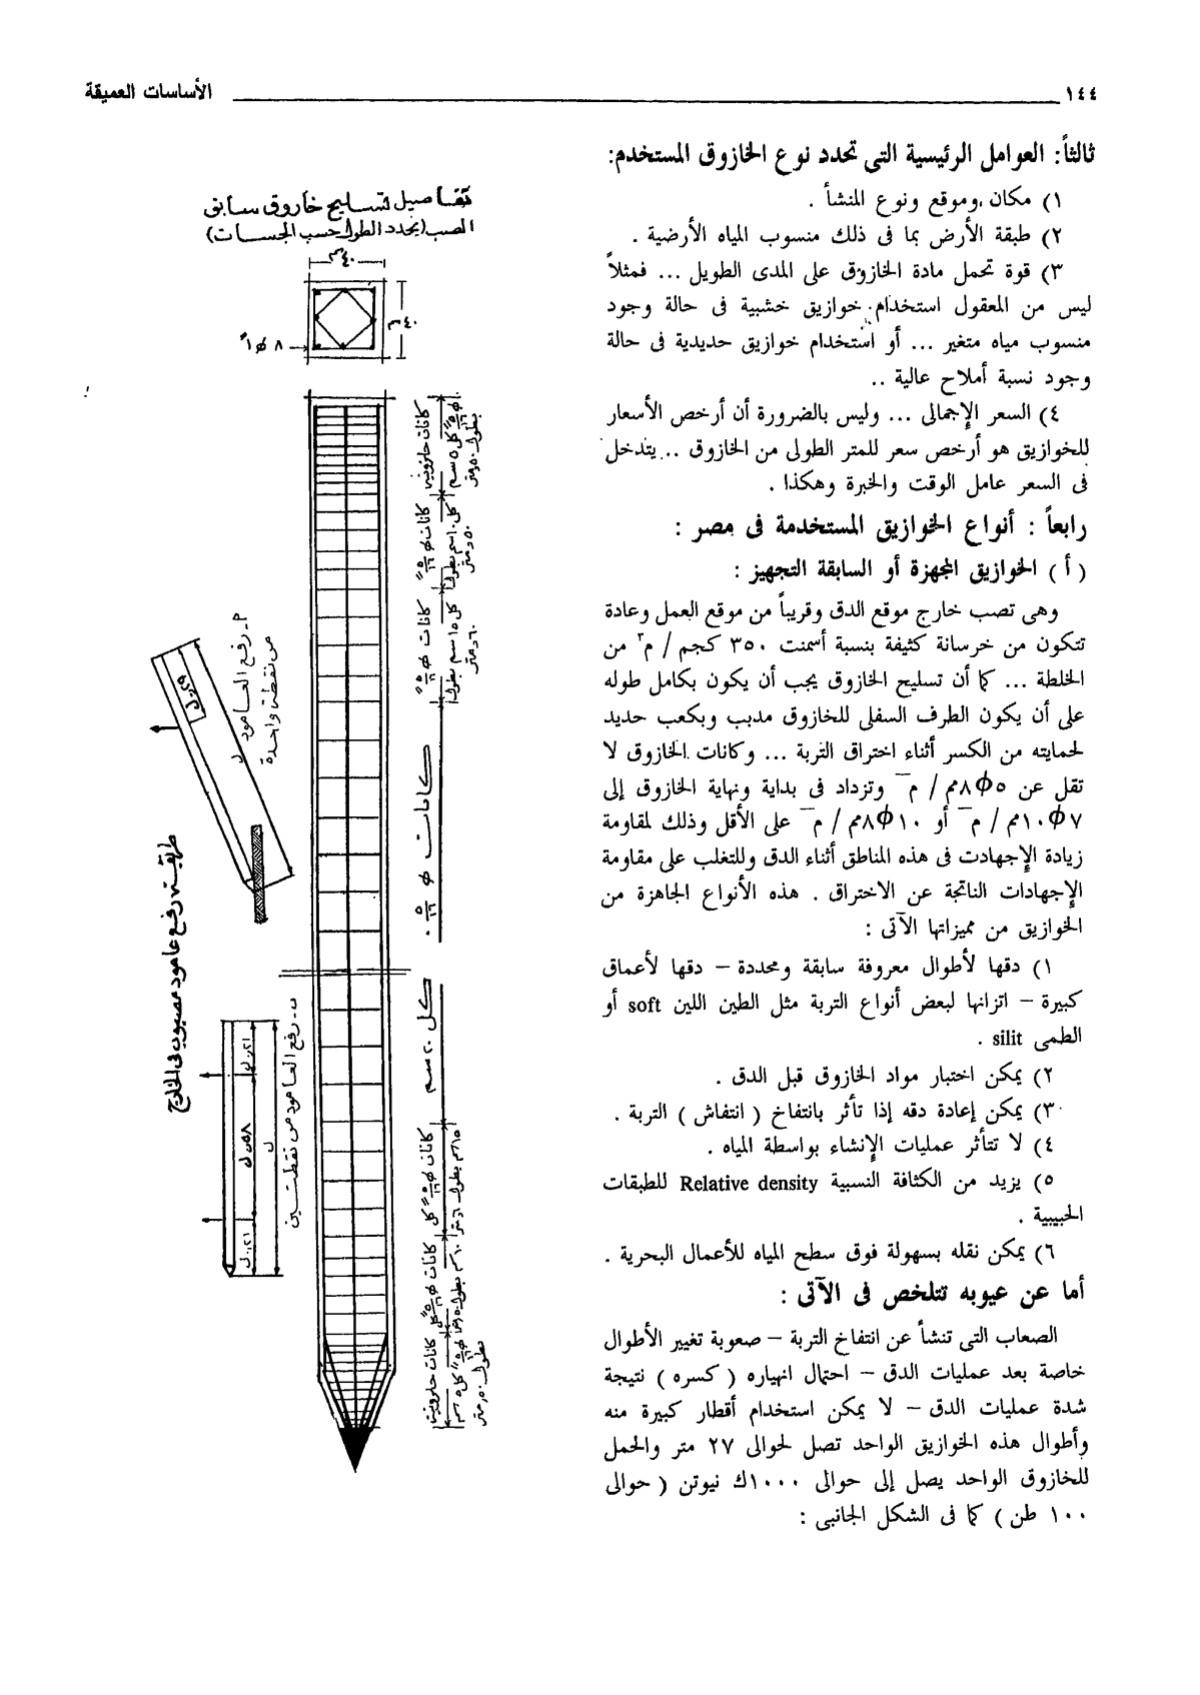 ١٤٤
الأساسات العميقة
ثالثاً: العوامل الرئيسية التى تحدد نوع الخازوق المستخدم:
١) مكان وموقع ونوع المنشأ .
٢) طبقة الأرض بما فى ذلك منسوب المياه الأرضية .
٣) قوة تحمل مادة الخازوق على المدى الطويل ... فمثلاً
ليس من المعقول استخدام خوازيق خشبية فى حالة وجود
منسوب مياه متغير ... أو استخدام خوازيق حديدية فى حالة
وجود نسبة أملاح عالية ..
٤) السعر الإجمالى ... وليس بالضرورة أن أرخص الأسعار
للخوازيق هو أرخص سعر للمتر الطولى من الخازوق ... يتدخل
فى السعر عامل الوقت والخبرة وهكذا .
رابعاً : أنواع الخوازيق المستخدمة فى مصر :
( أ ) الخوازيق المجهزة أو السابقة التجهيز :
وهى تصب خارج موقع الدق وقريباً من موقع العمل وعادة
تتكون من خرسانة كثيفة بنسبة أسمنت ٣٥٠ كجم / م٣ من
الخلطة ... كما أن تسليح الخازوق يجب أن يكون بكامل طوله
على أن يكون الطرف السفلى للخازوق مدبب وبكعب حديد
لحمايته من الكسر أثناء احتراق التربة ... وكانات الخازوق لا
تقل عن ٥ϕ٨م / م‾ وتزداد فى بداية ونهاية الخازوق إلى
٧ϕ١٠م / م‾ أو ١٠ϕ٨م / م‾ على الأقل وذلك لمقاومة
زيادة الإجهادت فى هذه المناطق أثناء الدق وللتغلب على مقاومة
الإجهادات الناتجة عن الاحتراق . هذه الأنواع الجاهزة من
الخوازيق من مميزاتها الآتى :
١) دقها لأطوال معروفة سابقة ومحددة – دقها لأعماق
كبيرة – اتزانها لبعض أنواع التربة مثل الطين اللين soft أو
الطمى silit .
٢) يمكن اختبار مواد الخازوق قبل الدق .
٣) يمكن إعادة دقه إذا تأثر بانتفاخ ( انتفاش ) التربة .
٤) لا تتأثر عمليات الإنشاء بواسطة المياه .
٥) يزيد من الكثافة النسبية Relative density للطبقات
الحبيبية .
٦) يمكن نقله بسهولة فوق سطح المياه للأعمال البحرية .
أما عن عيوبه تتلخص فى الآتى :
الصعاب التى تنشأ عن انتفاخ التربة – صعوبة تغيير الأطوال
خاصة بعد عمليات الدق – احتمال انهياره ( كسره ) نتيجة
شدة عمليات الدق – لا يمكن استخدام أقطار كبيرة منه
وأطوال هذه الخوازيق الواحد تصل لحوالى ٢٧ متر والحمل
للخازوق الواحد يصل إلى حوالى ١٠٠٠ك نيوتن ( حوالى
١٠٠ طن ) كما فى الشكل الجانبى :
تفاصيل تسليح خازوق سابق
الصب (يحدد الطول حسب الجسات)
٤٠
٤٠
٨ ϕ ١٦
كانات حلزونية
كل ٥ سم
كانات
كل ١٠ سم بطول
كانات
كل ١٥ سم بطول
كانات ϕ
كل ٢٠ سم
كانات
كانات
كانات حلزونية
م - رفع العامود
من نقطة واحدة
ل
طريقة رفع عامود مصبوب فى الخارج
ب - رفع العامود من نقطتين
٢١,٠ل
٥٨,٠ل
٢١,٠ل
ل